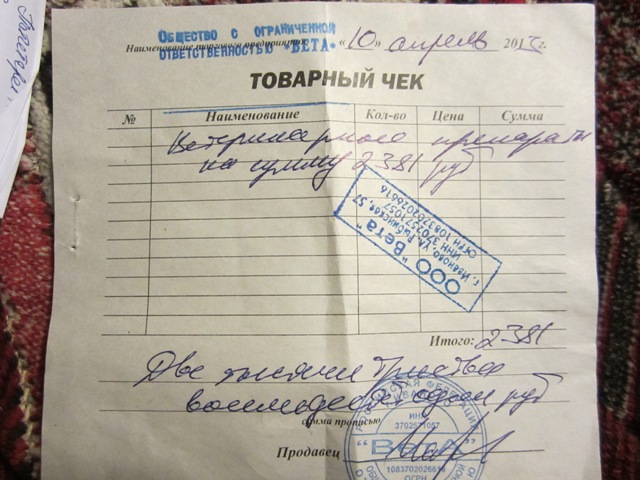 Общество с ограниченной
ответственностью "Вета"
Наименование торгового предприятия "10" апрель 201 г.
ТОВАРНЫЙ ЧЕК
№ Наименование Кол-во Цена Сумма
Ветеринарного препараты
на сумму 2381 руб
ООО "Вета"
г. Иваново, ул. Рыбинская, 57
ИНН 3702571057
ОГРН 1083702026616
Итого: 2381
Две тысячи триста
восемьдесят один руб
сумма прописью
Продавец
РОССИЙСКАЯ ФЕДЕРАЦИЯ
ИНН
3702571057
"ВетА"
1083702026616
ОГРН